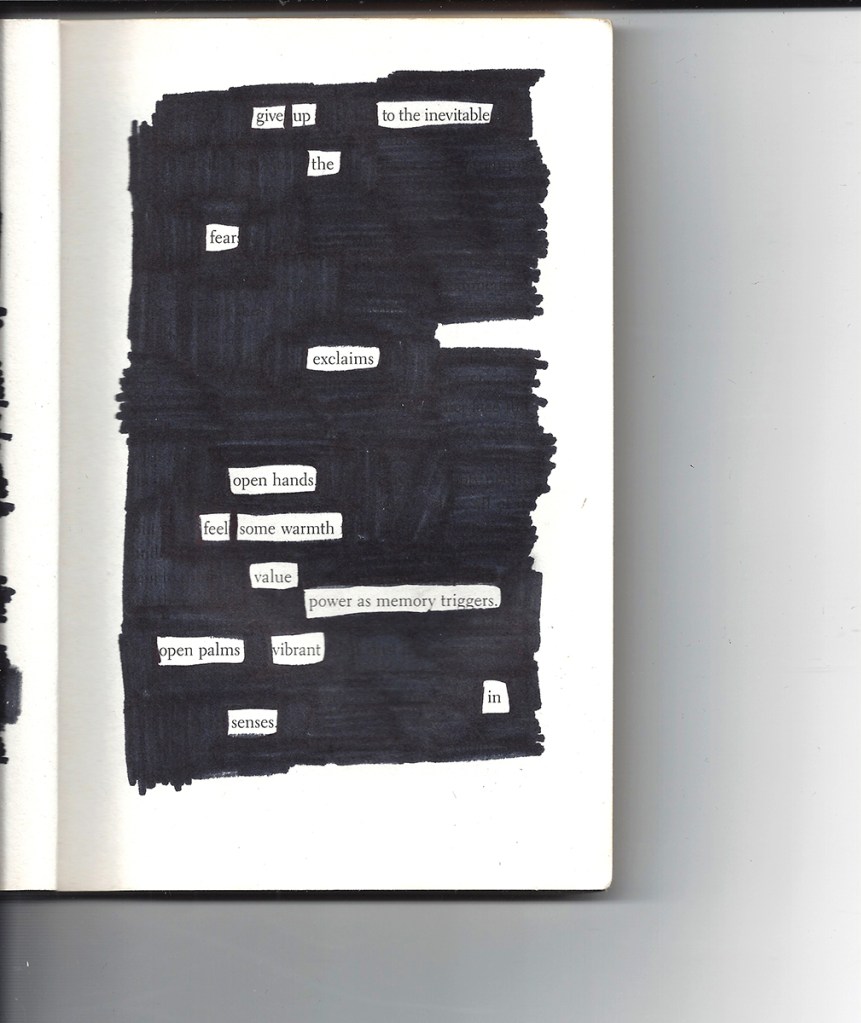 give up to the inevitable
the
fear
exclaims
open hands.
feel some warmth
value
power as memory triggers.
open palms vibrant
in
senses.